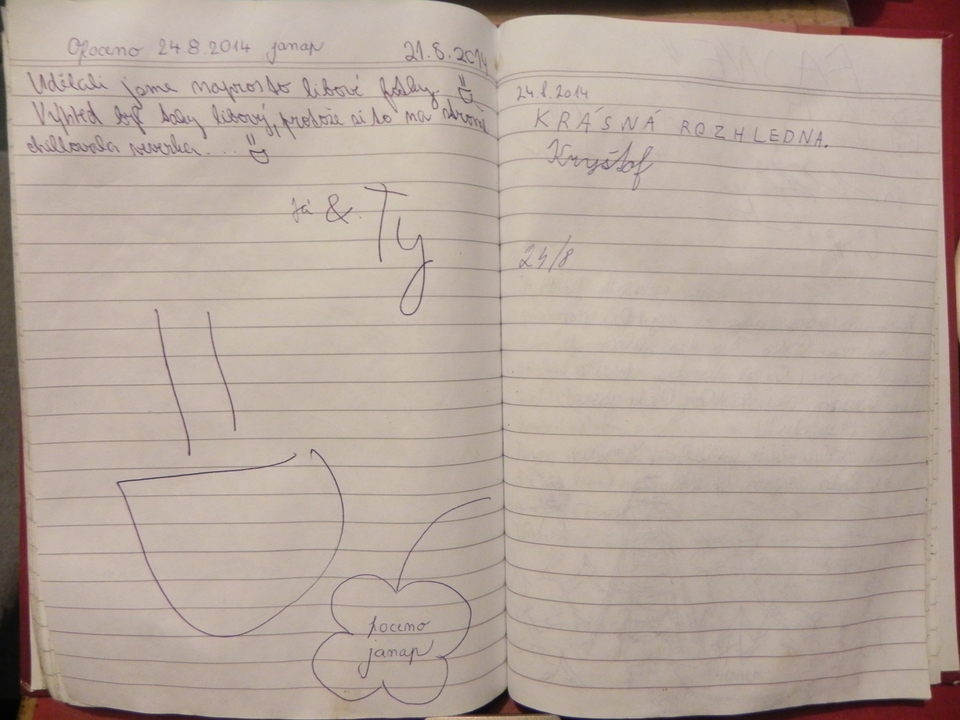 Opoceno 24.8.2014 janap
21.8.2014
Udělali jsme naprosto libové fotky.
Výhled byl taky libový, protože si to na stromě
chillovala veverka....
já & Ty
poceno
janap
24.8.2014
KRÁSNÁ ROZHLEDNA.
Kryštof
24/8